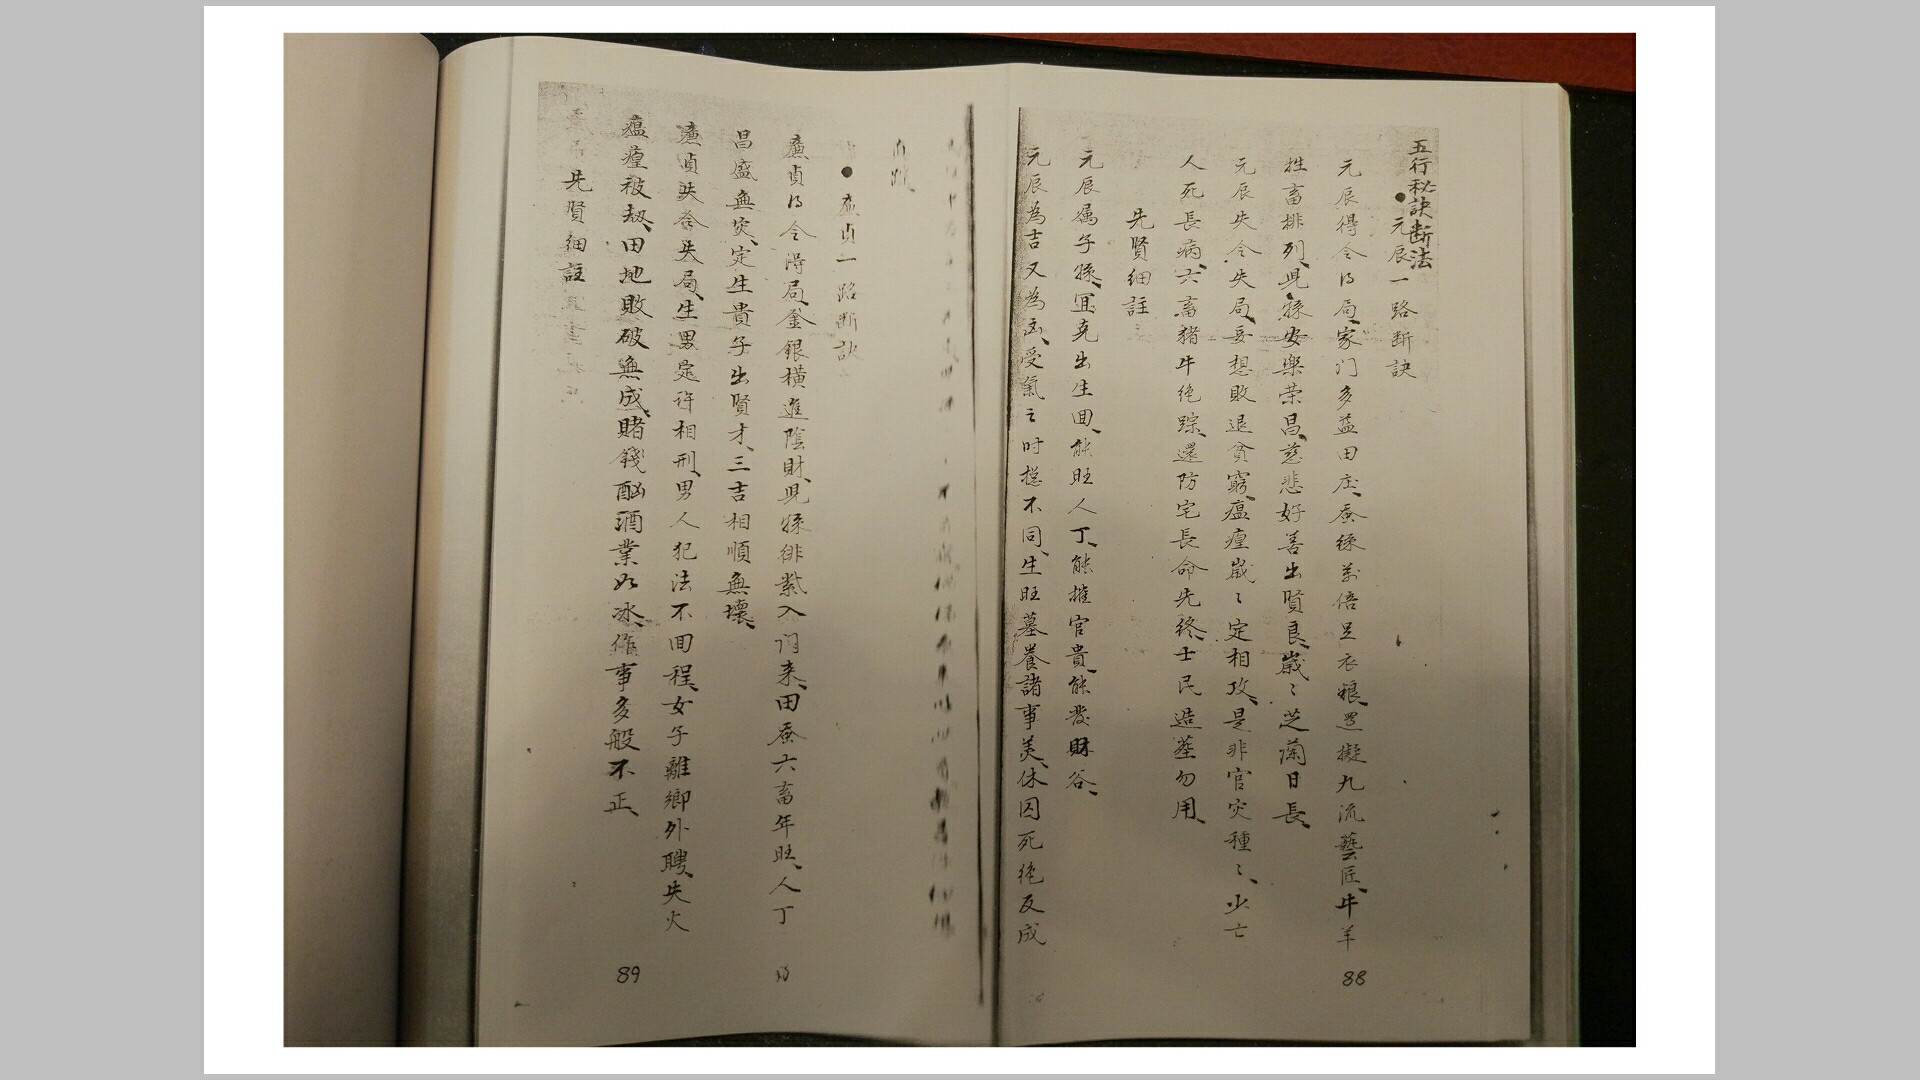 五行秘訣断法
●元辰一路断訣
元辰得令得局、家门多益田庄、蚕絲萬倍足衣粮、置擬九流藝匠、牛羊
牲畜排列、児孫安樂荣昌、慈悲好善出賢良、歲〻芝蘭日長、
元辰失令失局、妄想敗退貧窮、瘟㾮歲〻定相攻、是非官灾種〻、少亡
人死長病、六畜猪牛绝踪、還防宅長命先終、士民造塟勿用、
先賢細註
元辰属子孫、冝尭出生囬、能旺人丁、能摧官貴、能發财谷、
元辰為吉又為凶、受氣之时揔不同、生旺墓養諸事美、休囚死绝反成
●廉貞一路断訣
廉貞得令得局、金銀横進陰財、児孫徘紫入门来、田蚕六畜年旺、人丁
昌盛無灾、定生貴子出賢才、三吉相順無壞、
廉貞失令失局、生男定许相刑、男人犯法不囬程、女子離鄉外聘、失火
瘟㾮被劫、田地敗破無成、賭錢酗酒業如冰、作事多般不正、
先賢細註
89
88